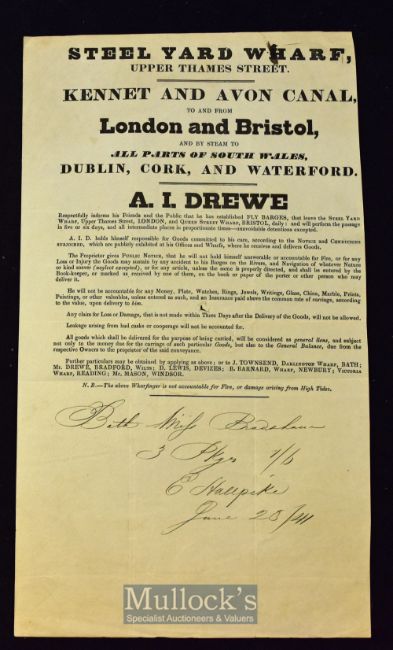 STEEL YARD WHARF,
UPPER THAMES STREET.
KENNET AND AVON CANAL,
TO AND FROM
London and Bristol,
AND BY STEAM TO
ALL PARTS OF SOUTH WALES,
DUBLIN, CORK, AND WATERFORD.
A. I. DREWE
Respectfully informs his Friends and the Public that he has established FLY BARGES, that leave the STEEL YARD
WHARF, Upper Thames Street, LONDON, and QUEEN STREET WHARF, BRISTOL, daily: and will perform the passage
in five or six days, and all intermediate places in proportionate time—unavoidable detentions excepted.
A. I. D. holds himself responsible for Goods committed to his care, according to the NOTICE and CONDITIONS
annexed, which are publicly exhibited at his Offices and Wharfs, where he receives and delivers Goods.
The Proprietor gives PUBLIC NOTICE, that he will not hold himself answerable or accountable for Fire, or for any
Loss or Injury the Goods may sustain by any accident to his Barges on the Rivers, and Navigation of whatever Nature
or kind soever (neglect excepted), or for any article, unless the same is properly directed, and shall be entered by the
Book-keeper, or marked as received by one of them, on the book or paper of the porter or other person who may
deliver it.
He will not be accountable for any Money, Plate, Watches, Rings, Jewels, Writings, Glass, China, Marble, Prints,
Paintings, or other valuables, unless entered as such, and an Insurance paid above the common rate of carriage, according
to the value, upon delivery to him.
Any claim for Loss or Damage, that is not made within Three Days after the Delivery of the Goods, will not be allowed.
Leakage arising from bad casks or cooperage will not be accounted for.
All goods which shall be delivered for the purpose of being carried, will be considered as general liens, and subject
not only to the money due for the carriage of such particular Goods, but also to the General Balance, due from the
respective Owners to the proprietor of the said conveyance.
Further particulars may be obtained by applying as above; or to J. TOWNSEND, DARLINGTON WHARF, BATH;
MR. DREWE, BRADFORD, WILTS; D. LEWIS, DEVIZES; B. BARNARD, WHARF, NEWBURY; VICTORIA
WHARF, READING; MR. MASON, WINDSOR.
N. B.—The above Wharfinger is not accountable for Fire, or damage arising from High Tides.
Bath Miss Bradshaw
3 Pkgs 1/6
E Hallpike
June 23/41
Mullock's
Specialist Auctioneers & Valuers